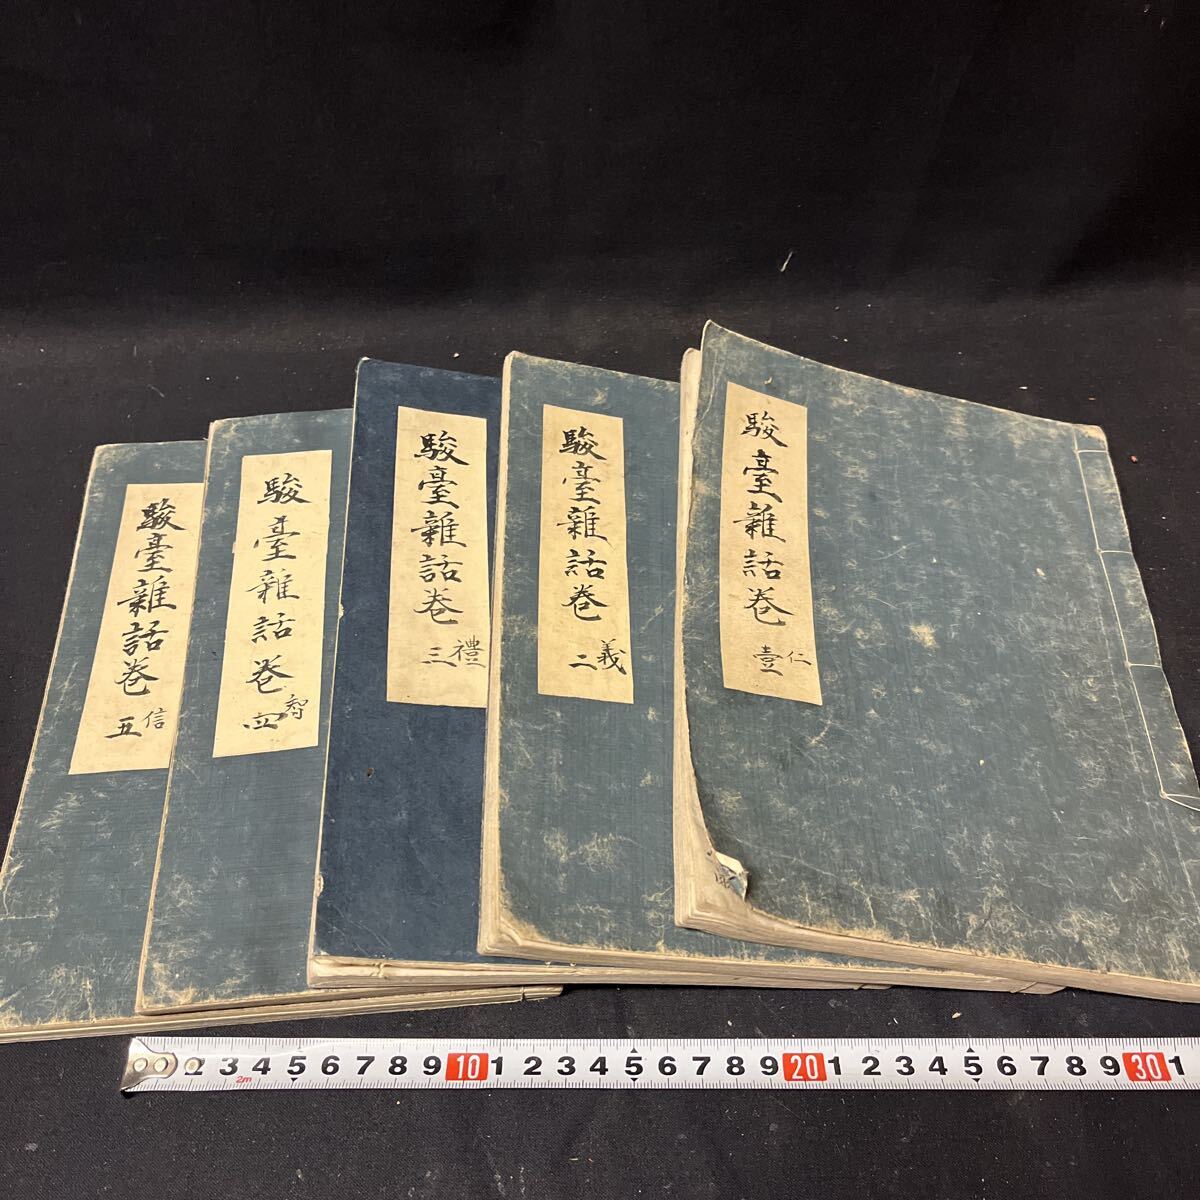 駿臺雜話卷壹 仁
駿臺雜話卷二 義
駿臺雜話卷三 禮
駿臺雜話卷四 智
駿臺雜話卷五 信
2 3 4 5 6 7 8 9 10 1 2 3 4 5 6 7 8 9 20 1 2 3 4 5 6 7 8 9 30 1
2m